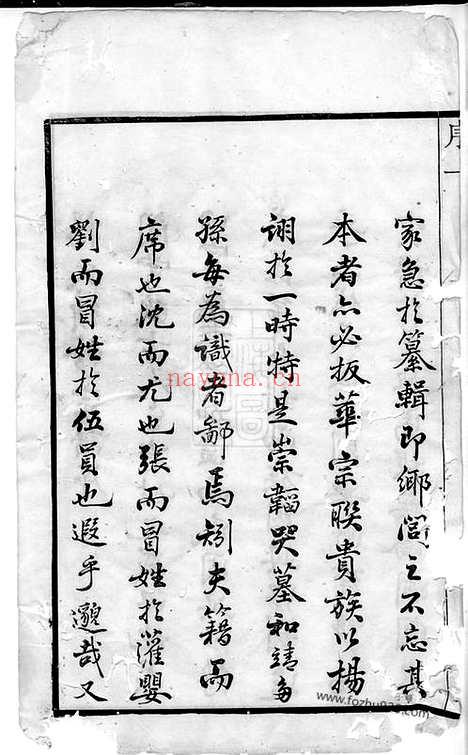 序一
家急於纂輯即鄉閭之不忘其
本者亦必扳華宗聯貴族以揚
詡於一時特是崇韜哭墓和靖多
孫每為識者鄙焉矧夫籍而
席也沈而尤也張而冒姓於灌嬰
劉而冒姓於伍員也遐乎邈哉又
nayona.cn